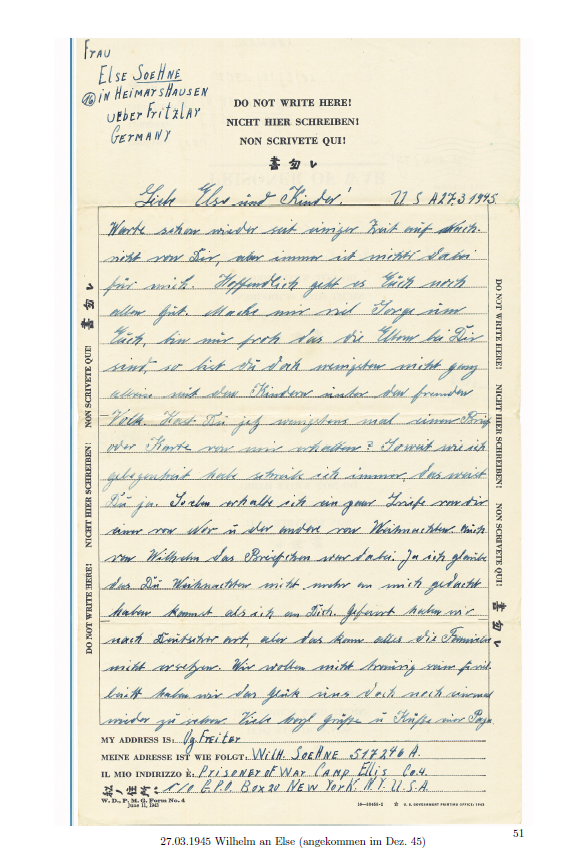 Frau
Else Soehne
(16) in Heimarshausen
ueber Fritzlar
Germany
DO NOT WRITE HERE!
NICHT HIER SCHREIBEN!
NON SCRIVETE QUI!
Liebe Else und Kinder! USA 27.3 1945.
Warte schon wieder seit einiger Zeit auf Nach-
richt von Dir, aber immer ist nichts dabei
für mich. Hoffendlich geht es Euch noch
allen gut. Mache mir viel Sorge um
Euch, bin nur froh das die Eltern bei Dir
sind, so bist du doch wenigsten nicht ganz
allein mit den Kindern unter den fremden
Volk. Hast Du jetz wenigstens mal einen Brief
oder Karte von mir erhalten? Soweit wie ich
gelegenheit habe schreibe ich immer, das weist
Du ja. Soeben erhalte ich ein paar Briefe von dir
einer von Nov u der andere von Weihnachten. Auch
von Wilhelm das Briefchen war dabei. Ja ich glaube
das Du Weihnachten nicht mehr an mich gedacht
haben kannst als ich an Dich. Gefeiert haben wir
nach Deutscher art, aber das kann alles die Familie
nicht ersetzen. Wir wollen nicht traurig sein
haben wir das Glük uns doch noch einmal
wieder zu sehen. Viele herzl Grüße u Küße euer Papa
DO NOT WRITE HERE! NICHT HIER SCHREIBEN! NON SCRIVETE QUI!
DO NOT WRITE HERE! NICHT HIER SCHREIBEN! NON SCRIVETE QUI!
MY ADDRESS IS: Ogfreiter
MEINE ADRESSE IST WIE FOLGT: Wilh. Soehne 517246 A.
IL MIO INDIRIZZO È: Prisoner of War Camp Ellis Co4.
c/o G.P.O. Box 20 New York. N.Y. U.S.A.
W. D., P. M. G. Form No. 4
June 11, 1943
U. S. GOVERNMENT PRINTING OFFICE: 1943
51
27.03.1945 Wilhelm an Else (angekommen im Dez. 45)